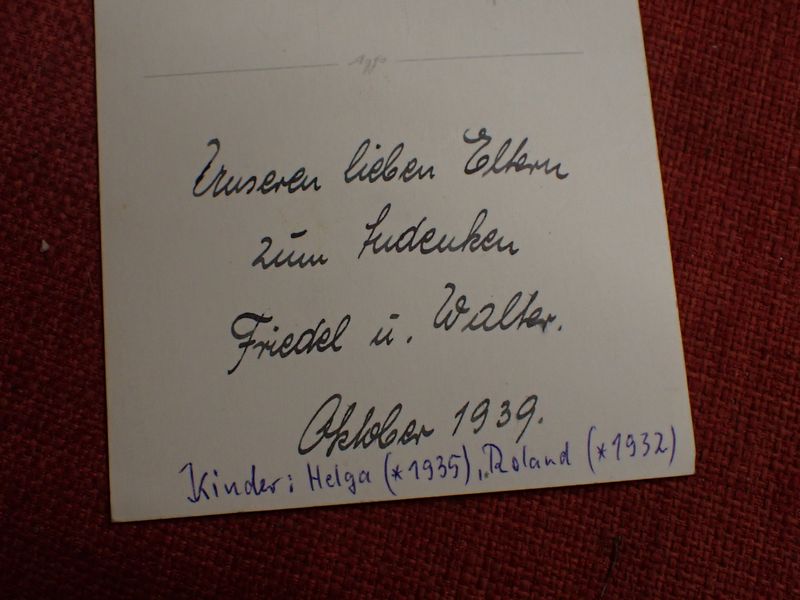 Agfa
Unseren lieben Eltern
zum Andenken
Friedel u. Walter.
Oktober 1939.
Kinder: Helga (*1935), Roland (*1932)